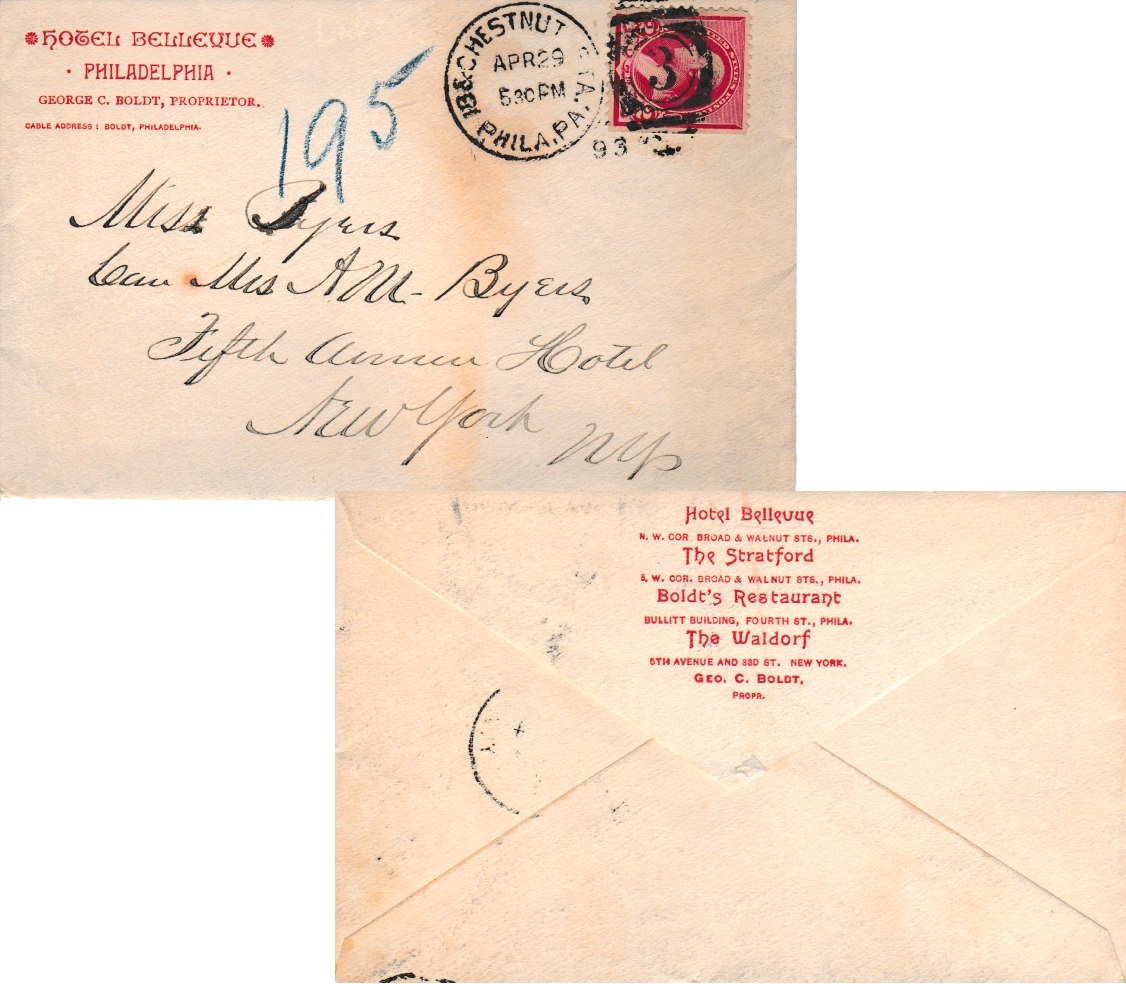 HOTEL BELLEVUE
· PHILADELPHIA ·
GEORGE C. BOLDT, PROPRIETOR.
CABLE ADDRESS: BOLDT, PHILADELPHIA.
195
18&CHESTNUT STA.
APR 29
530PM
PHILA, PA.
93
3
UNITED STATES POSTAGE
Miss Byers
Care Mrs A M - Byers
Fifth Avenue Hotel
New York NY
Hotel Bellevue
N. W. COR BROAD & WALNUT STS., PHILA.
The Stratford
S. W. COR. BROAD & WALNUT STS., PHILA.
Boldt's Restaurant
BULLITT BUILDING, FOURTH ST., PHILA.
The Waldorf
5TH AVENUE AND 33D ST. NEW YORK.
GEO. C. BOLDT,
PROPR.